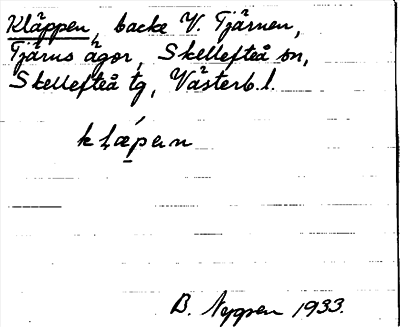 Kläppen, backe V. Tjärnen,
Tjärns ägor, Skellefteå sn,
Skellefteå tg, Västerb. l.
klǽpan
B. Nygren 1933.